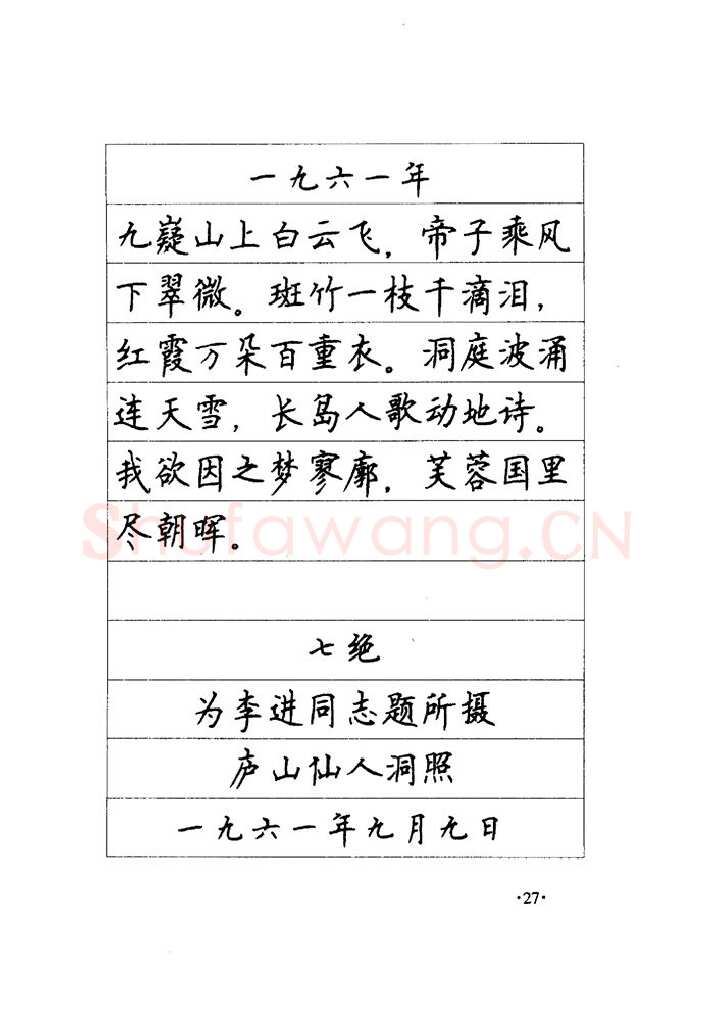 一九六一年
九嶷山上白云飞，帝子乘风
下翠微。斑竹一枝千滴泪，
红霞万朵百重衣。洞庭波涌
连天雪，长岛人歌动地诗。
我欲因之梦寥廓，芙蓉国里
尽朝晖。
Shufawang.CN
七绝
为李进同志题所摄
庐山仙人洞照
一九六一年九月九日
·27·